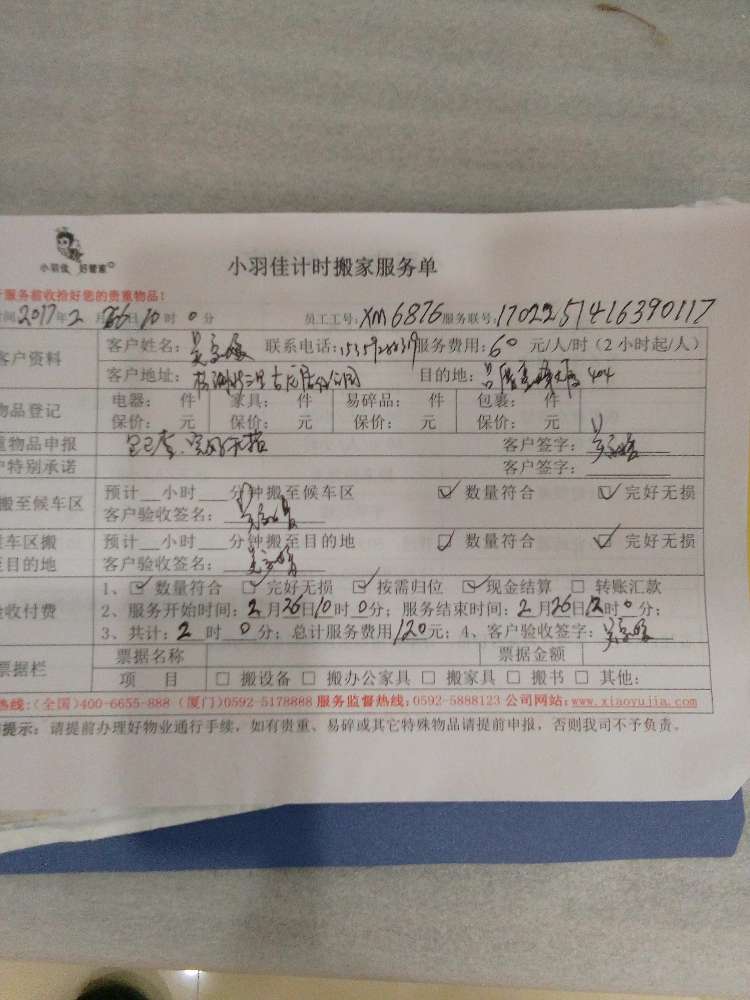 小羽佳 好管家
小羽佳计时搬家服务单
服务前收拾好您的贵重物品!
间2017年2月26日10时0分 员工工号:XM6876服务联号:1702251416390117
客户资料 客户姓名: 联系电话: 服务费用:60元/人/时(2小时起/人)
客户地址: 目的地: 404
物品登记 电器: 件 家具: 件 易碎品: 件 包裹: 件
保价: 元 保价: 元 保价: 元 保价: 元
重物品申报 客户签字:
户特别承诺 客户签字:
搬至候车区 预计__小时___分钟搬至候车区 ☑ 数量符合 ☑ 完好无损
客户验收签名:
车区搬 预计__小时___分钟搬至目的地 ☑ 数量符合 ☑ 完好无损
至目的地 客户验收签名:
1、☑ 数量符合 ☑ 完好无损 ☑ 按需归位 ☑ 现金结算 □ 转账汇款
验收付费 2、服务开始时间:2月26日10时0分;服务结束时间:2月26日12时0分;
3、共计:2时0分;总计服务费用120元;4、客户验收签字:
票据栏 票据名称 票据金额
项 目 □ 搬设备 □ 搬办公家具 □ 搬家具 □ 搬书 □ 其他:
热线:(全国)400-6655-888 (厦门)0592-5178888 服务监督热线:0592-5888123 公司网站:www.xiaoyujia.com
提示:请提前办理好物业通行手续,如有贵重、易碎或其它特殊物品请提前申报,否则我司不予负责。